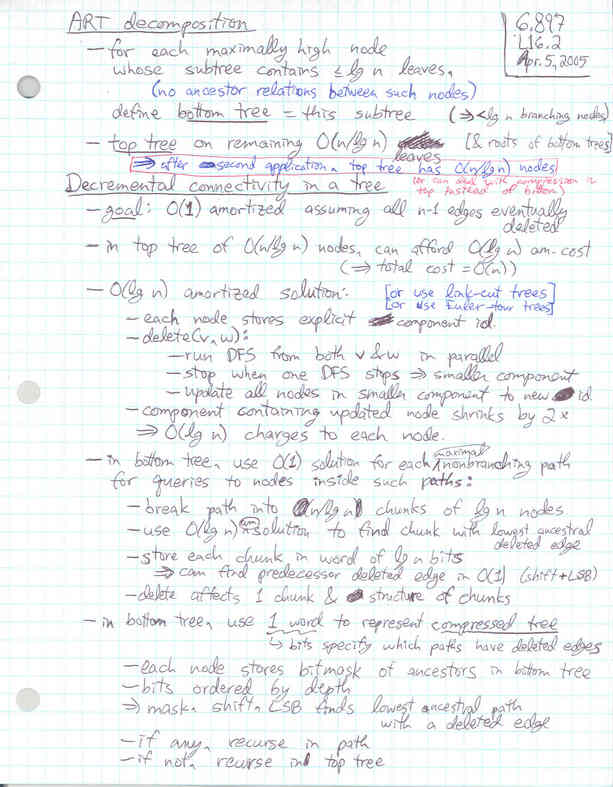 ART decomposition
6.897
L16.2
Apr. 5, 2005
— for each maximally high node
whose subtree contains ≤ lg n leaves,
(no ancestor relations between such nodes)
define bottom tree = this subtree (⇒ < lg n branching nodes)
— top tree on remaining O(n/lg n) leaves [& roots of bottom trees]
⇒ after second application, top tree has O(n/lg n) nodes
(or can deal with compression in top instead of bottom)
Decremental connectivity in a tree
— goal: O(1) amortized assuming all n-1 edges eventually deleted
— in top tree of O(n/lg n) nodes, can afford O(lg n) am. cost
(⇒ total cost = O(n))
— O(lg n) amortized solution: [or use link-cut trees]
[or use Euler-tour trees]
— each node stores explicit component id.
— delete(v,w):
— run DFS from both v & w in parallel
— stop when one DFS stops ⇒ smaller component
— update all nodes in smaller component to new id
— component containing updated node shrinks by 2×
⇒ O(lg n) charges to each node.
— in bottom tree, use O(1) solution for each maximal nonbranching path
for queries to nodes inside such paths:
— break path into n/lg n chunks of lg n nodes
— use O(lg n) am. solution to find chunk with lowest ancestral deleted edge
— store each chunk in word of lg n bits
⇒ can find predecessor deleted edge in O(1) (shift + LSB)
— delete affects 1 chunk & structure of chunks
— in bottom tree, use 1 word to represent compressed tree
↳ bits specify which paths have deleted edges
— each node stores bitmask of ancestors in bottom tree
— bits ordered by depth
⇒ mask, shift, LSB finds lowest ancestral path
with a deleted edge
— if any, recurse in path
— if not, recurse in top tree